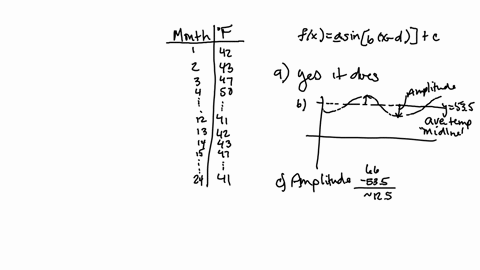 Month | °F
1 | 42
2 | 43
3 | 47
4 | 50
⋮ | ⋮
12 | 41
13 | 42
14 | 43
15 | 47
⋮ | ⋮
24 | 41
f(x)=asin[b(x-d)]+c
a) yes it does
b)
Amplitude
y=53.5
ave temp
"midline"
c) Amplitude
66
-53.5
~12.5